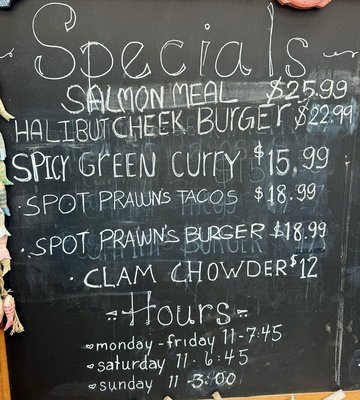 Specials
SALMON MEAL $25.99
HALIBUT CHEEK BURGER $22.99
SPICY GREEN CURRY $15.99
• SPOT PRAWN'S TACOS $18.99
• SPOT PRAWN'S BURGER $18.99
• CLAM CHOWDER $12
Hours
monday - friday 11 - 7:45
saturday 11 - 6:45
sunday 11 - 3:00